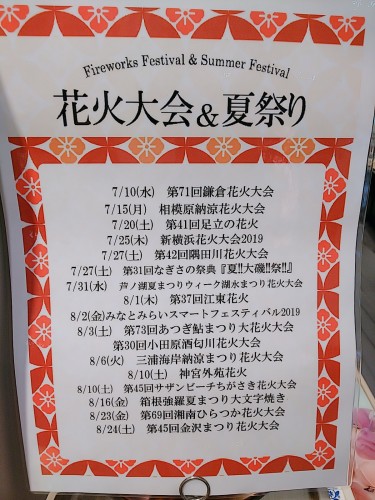 Fireworks Festival & Summer Festival
花火大会&夏祭り
7/10(水) 第71回鎌倉花火大会
7/15(月) 相模原納涼花火大会
7/20(土) 第41回足立の花火
7/25(木) 新横浜花火大会2019
7/27(土) 第42回隅田川花火大会
7/27(土) 第31回なぎさの祭典『夏!!大磯!!祭!!』
7/31(水) 芦ノ湖夏まつりウィーク湖水まつり花火大会
8/1(木) 第37回江東花火
8/2(金)みなとみらいスマートフェスティバル2019
8/3(土) 第73回あつぎ鮎まつり大花火大会
第30回小田原酒匂川花火大会
8/6(火) 三浦海岸納涼まつり花火大会
8/10(土) 神宮外苑花火
8/10(土) 第45回サザンビーチちがさき花火大会
8/16(金) 箱根強羅夏まつり大文字焼き
8/23(金) 第69回湘南ひらつか花火大会
8/24(土) 第45回金沢まつり花火大会